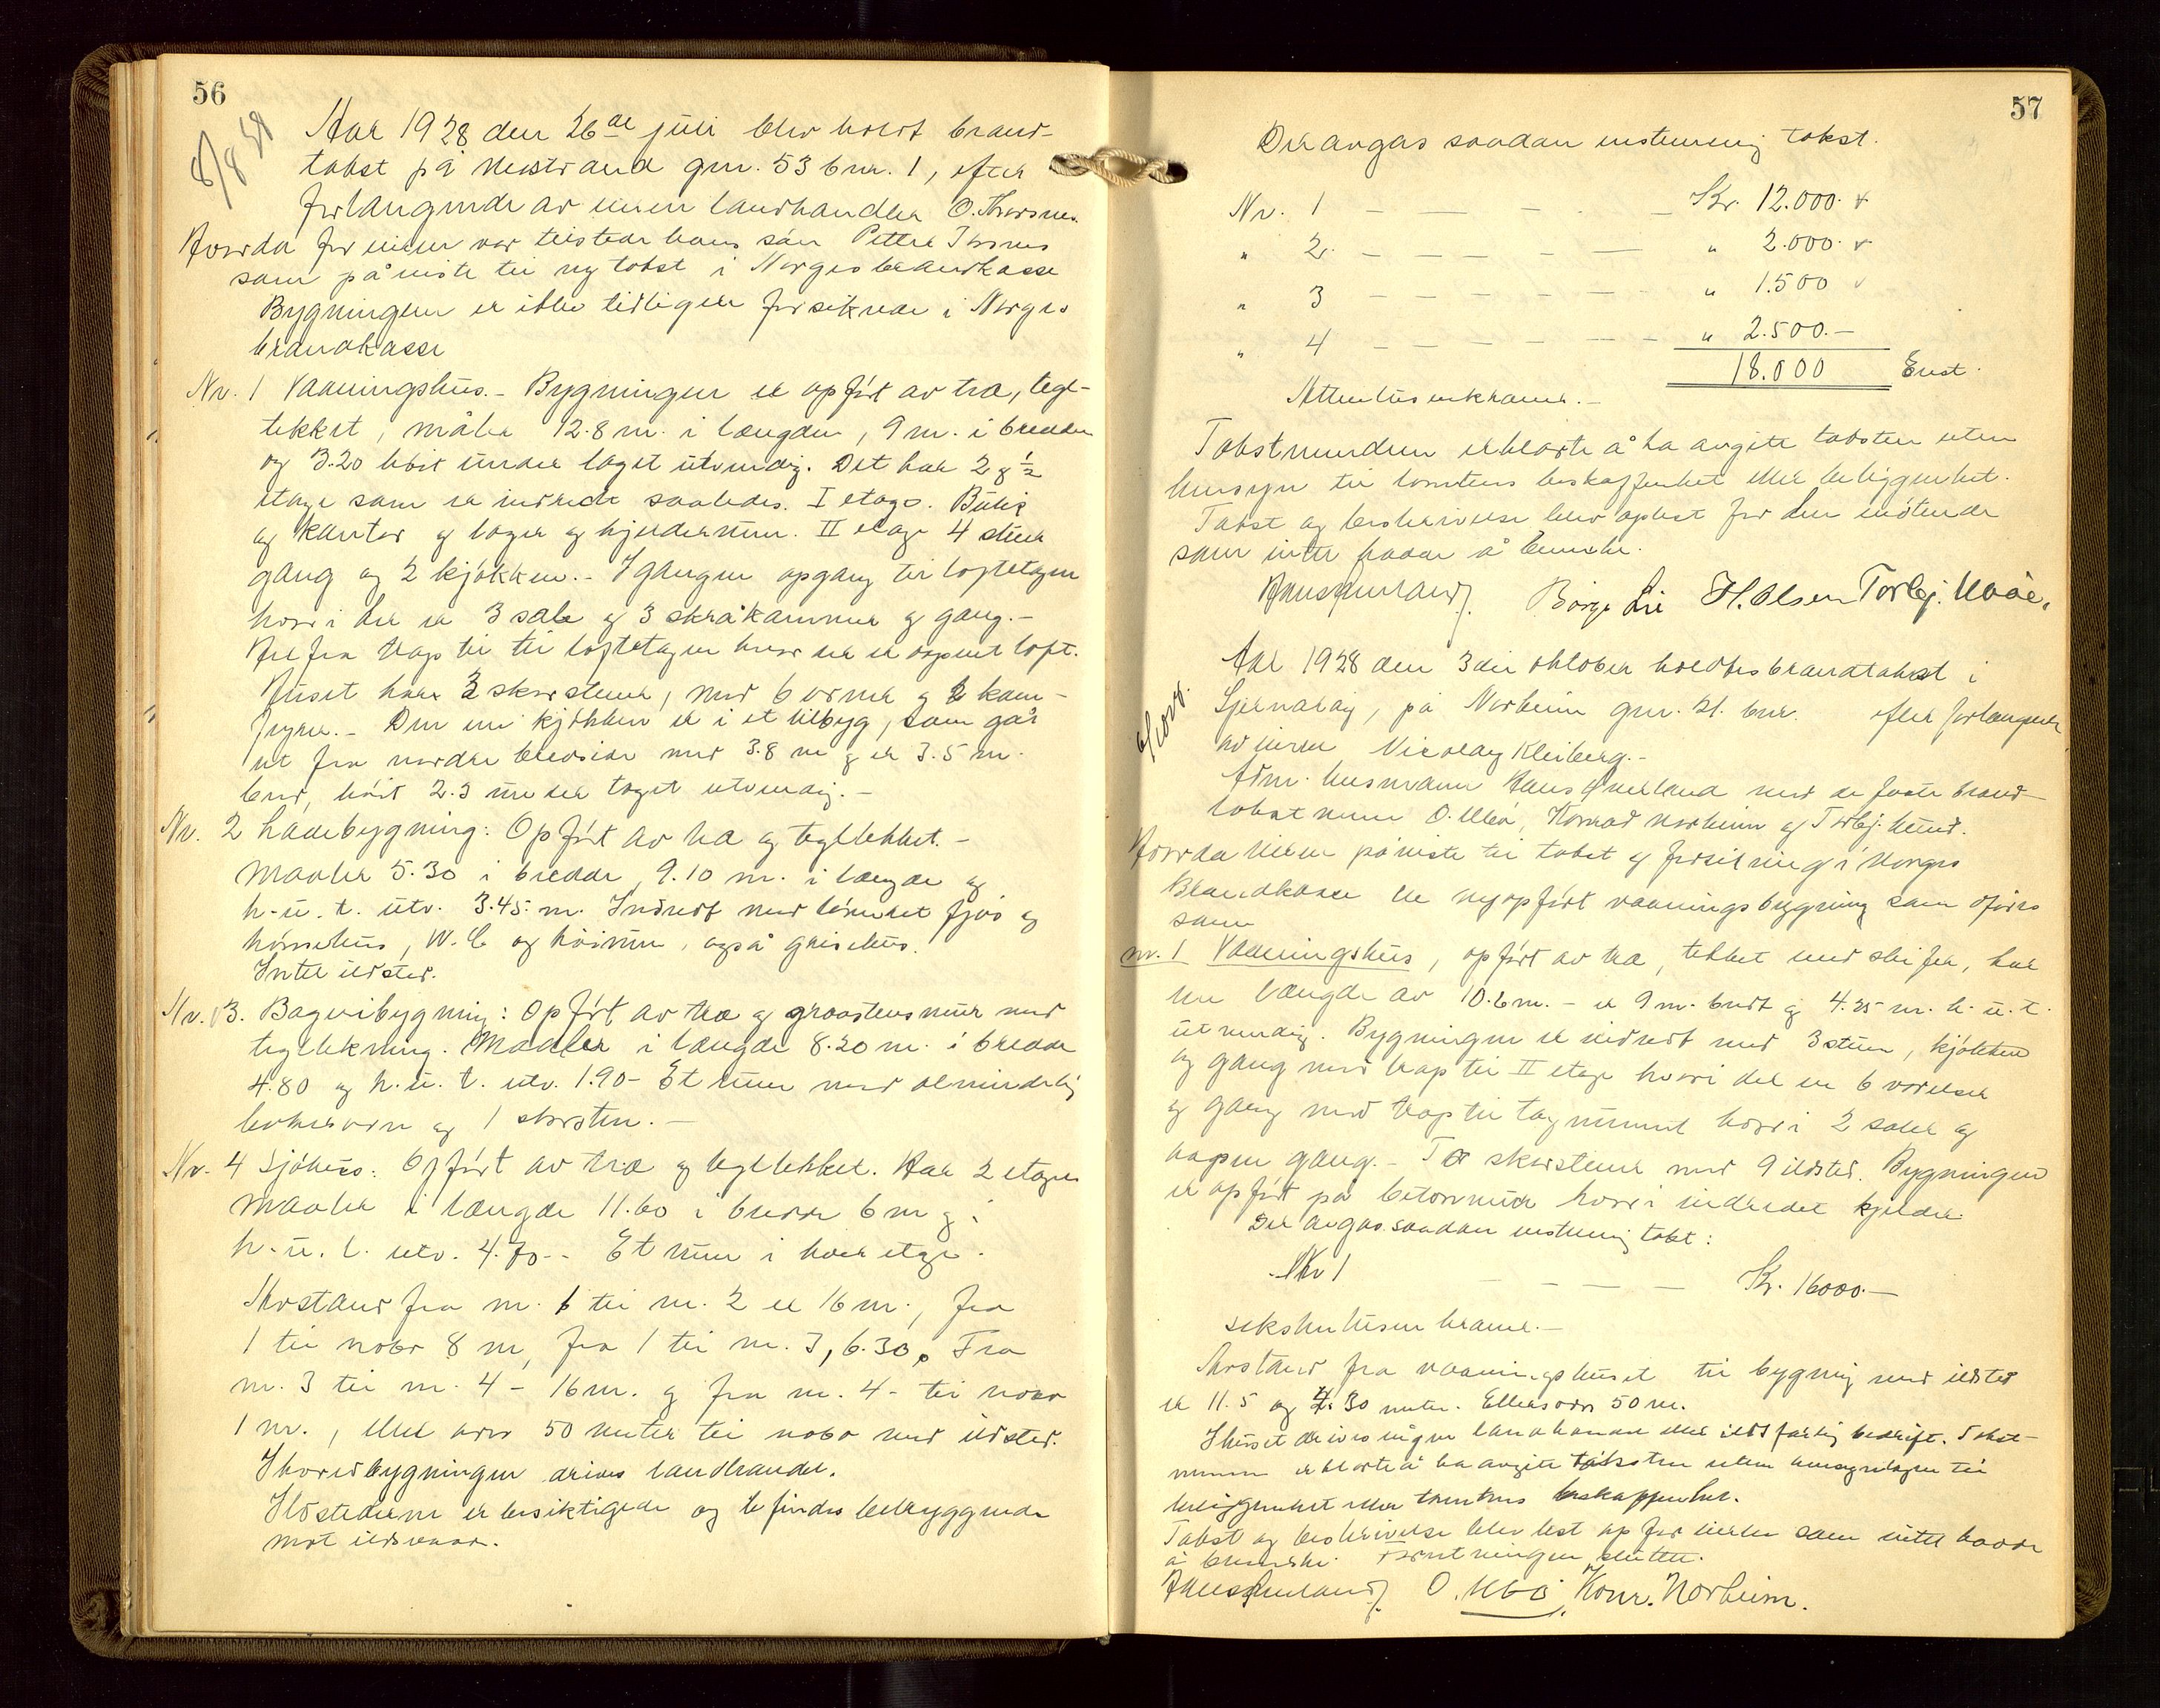 56
8/8 28
Aar 1928 den 26de juli blev holdt brand-
takst på Nedstrand gnr. 53 bnr. 1, efter
forlangende av eieren landhandler O. Thorsnes.
Hvorda for eieren var tilstede hans sön Petter Torsnes
som påviste til ny takst i Norges brandkasse
Bygningen er ikke tidligere forsikrede i Norges
brandkasse
Nr. 1 Vaaningshus.- Bygningen er opfört av træ, tegl-
tekket, måler 12.8 m. i længden, 9 m. i bredden
og 3.20 höit under taget utvendig. Det har 2 og ½
etage som er indredt saaledes. I etage. Butik
og kontor og lager og kjelderrum. II etage 4 stuer
gang og 2 kjökken.- I gangen opgang til loftetagen
hvori der er 3 sale og 3 skråkammer og gang.-
Her fra trap til loftetagen hvor der er aapent loft.
Huset har 3 skorstener, med 6 ovner og 2 kom-
fyrer.- Den ene kjökken er i et tilbyg, som går
ut fra nordre bredside med 3.8 m og er 3.5 m.
bred, höit 2.3 under taget utvendig.-
Nr. 2 Ladebygning: Opfört av træ og tegltekket.-
Maaler 5.30 i bredde, 9.10 m. i længde og
h.u.t. utv. 3.45 m. Indredt med tömmret fjös og
hönsehus, W.C og höirum, også grisehus.
Intet ildsted.
Nr. 3. Bageribygning: Opfört av træ og graastensmur med
tegltekning. Maaler i længde 8.20 m. i bredde
4.80 og h.u.t. utv. 1.90- Et rum med almindelig
bakerovn og 1 skorsten.-
Nr. 4 Sjöhus: Opfört av træ og tegltekket. Har 2 etager
Maaler i længde 11.60 i bredde 6 m og
h.u.t. utv. 4.70-- Et rum i hver etage.
Avstand fra nr. 1 til nr. 2 er 16 m., fra
1 til nabo 8 m, fra 1 til nr. 3, 6.30, Fra
nr. 3 til nr. 4 - 16 m. og fra nr. 4 - til nabo
1 m., eller over 50 meter til nabo med ildsted.
I hovedbygningen drives landhandel.
Ildstederne er besiktigede og befindes betryggende
mot ildsvaade.
57
Der avgas saadan enstemmig takst.
Nr. 1 - - - - - Kr. 12.000. v
" 2. - - - - - " 2.000. v
" 3 - - - - - " 1.500 v
" 4 - - - - - " 2.500.-
18.000 Enst.
Attentusenkroner.-
Takstmendene erklærte å ha avgitt taksten uten
hensyn til tomtens beskaffenhet eller beliggenhet.
Takst og beskrivelse blev oplest for den mötende
som intet hadde å bemerke.
Hans Hinnaland f. Börge Lie H. Olsen Torbj. Uböe.
6/10 28.
Aar 1928 den 3die oktober holdtes brandtakst i
Sjernaröy, på Norheim gnr. 21. bnr. efter forlangende
av eieren Nicolay Kleiberg.-
Adm. lensmann Hans Hinnaland med de faste brand-
takstmenn O. Ubö, Konrad Norheim og Torbj. Hund.
Hvorda eieren påviste til takst og forsikring i Norges
Brandkasse en nyopfört vaaningsbygning som opföres
som
nr. 1 Vaaningshus, opfört av træ, tekket med skifer, har
en længde av 10.6 m. - er 9 m. bredt og 4.25 m. h.u.t.
utvendig. Bygningen er indredt med 3 stuer, kjökken
og gang med trap til II etage hvori det er 6 værelser
og gang med trap til tagrummet hvori 2 saler og
aapen gang.- To skorstener med 9 ildsted. Bygningen
er opfört på betonmur hvori indredet kjelder.
Der avgas saadan enstemmig takst:
Nr 1 - - - - Kr. 16000.-
seksten tusen kroner.-
Avstand fra vaaningshuset til bygning med ildsted
er 11.5 og 4.30 meter. Ellers over 50 m.
I huset drives ingen landhandel eller ildsfarlig bedrift. Takst-
mennene erklærte å ha avgitt taksten uten hensyntagen til
beliggenhet eller tomtens beskaffenhet.
Takst og beskrivelse blev lest op for eieren som intet hadde
å bemerke. Forretningen sluttet.
Hans Hinnaland f. O. Ubö, Konr. Norheim.